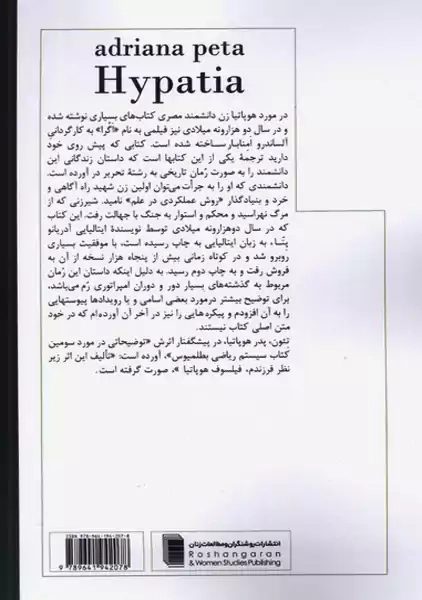 adriana peta
Hypatia
در مورد هوپاتیا زن دانشمند مصری کتاب‌های بسیاری نوشته شده
و در سال دو هزارونه میلادی نیز فیلمی به نام «آگرا» به کارگردانی
آلساندرو اِمنابار ساخته شده است. کتابی که پیش روی خود
دارید ترجمهٔ یکی از این کتابها است که داستان زندگانی این
دانشمند را به صورت رُمان تاریخی به رشتهٔ تحریر در آورده است.
دانشمندی که او را به جرأت می‌توان اولین زن شهید راه آگاهی و
خرد و بنیادگذار «روش عملکردی در علم» نامید. شیرزنی که از
مرگ نهراسید و محکم و استوار به جنگ با جهالت رفت. این کتاب
که در سال دوهزارونه میلادی توسط نویسندهٔ ایتالیایی آدریانو
پتّا، به زبان ایتالیایی به چاپ رسیده است، با موفقیت بسیاری
روبرو شد و در کوتاه زمانی بیش از پنجاه هزار نسخه از آن به
فروش رفت و به چاپ دوم رسید. به دلیل اینکه داستان این رُمان
مربوط به گذشته‌های بسیار دور و دوران امپراتوری رُم می‌باشد،
برای توضیح بیشتر درمورد بعضی اسامی و یا رویدادها پیوستهایی
را به آن افزودم و پیکره‌هایی را نیز در آخر آن آورده‌ام که در خود
متن اصلی کتاب نیستند.
تِئون، پدر هوپاتیا، در پیشگفتار اثرش «توضیحاتی در مورد سومین
کتاب سیستم ریاضی بطلمیوس»، آورده است: «تألیف این اثر زیر
نظر فرزندم، فیلسوف هوپاتیا »، صورت گرفته است.
ISBN 978-964-194-207-8
9 789641 942078
انتشارات روشنگران و مطالعات زنان
Roshangaran
& Women Studies Publishing